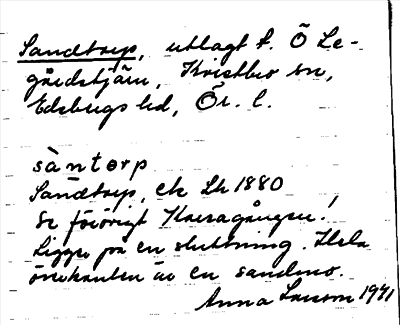 Sandtorp, utlagt f. Ö Le-
gårdstjärn, Kvistbro sn,
Edsbergs hd, Ör. l.
sàntorp
Sandtorp, ek Lk 1880
Se förövrigt Korsagången!
Ligger på en sluttning. Hela
överkanten är en sandmo.
Anna Larsson 1941